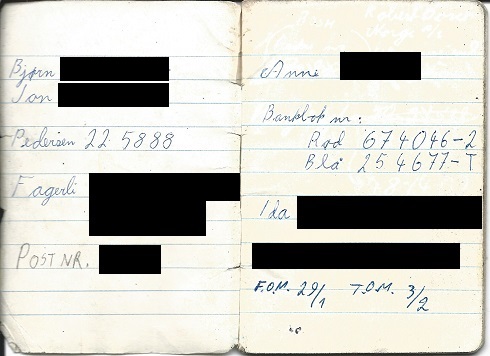 Bjørn
Jon
Pedersen 22 5888
Fagerli
POST NR.
Anne
Bankbok nr:
Rød 674046-2
Blå 254677-T
Ida
F.O.M. 29/1 T.O.M. 3/2